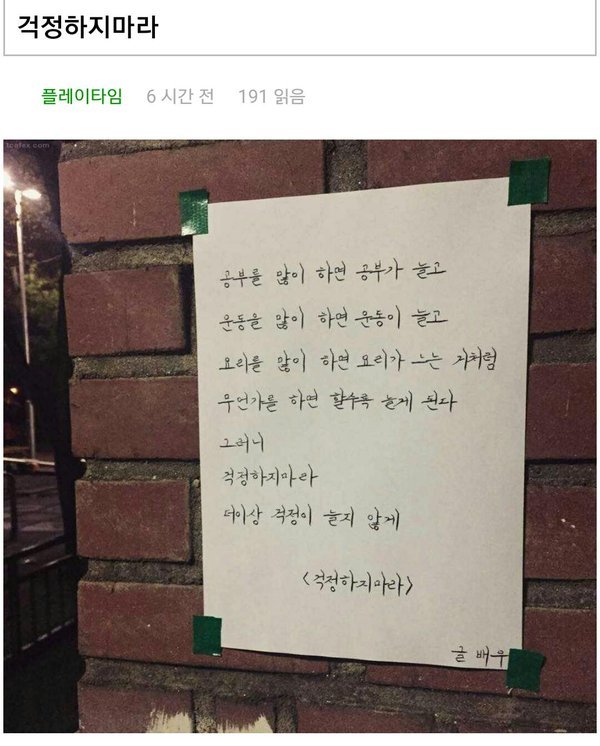 걱정하지마라
플레이타임 6 시간 전 191 읽음
tcafex.com
공부를 많이 하면 공부가 늘고
운동을 많이 하면 운동이 늘고
요리를 많이 하면 요리가 느는 거처럼
무언가를 하면 할수록 늘게 된다
그러니
걱정하지마라
더이상 걱정이 늘지 않게
<걱정하지마라>
글 배우